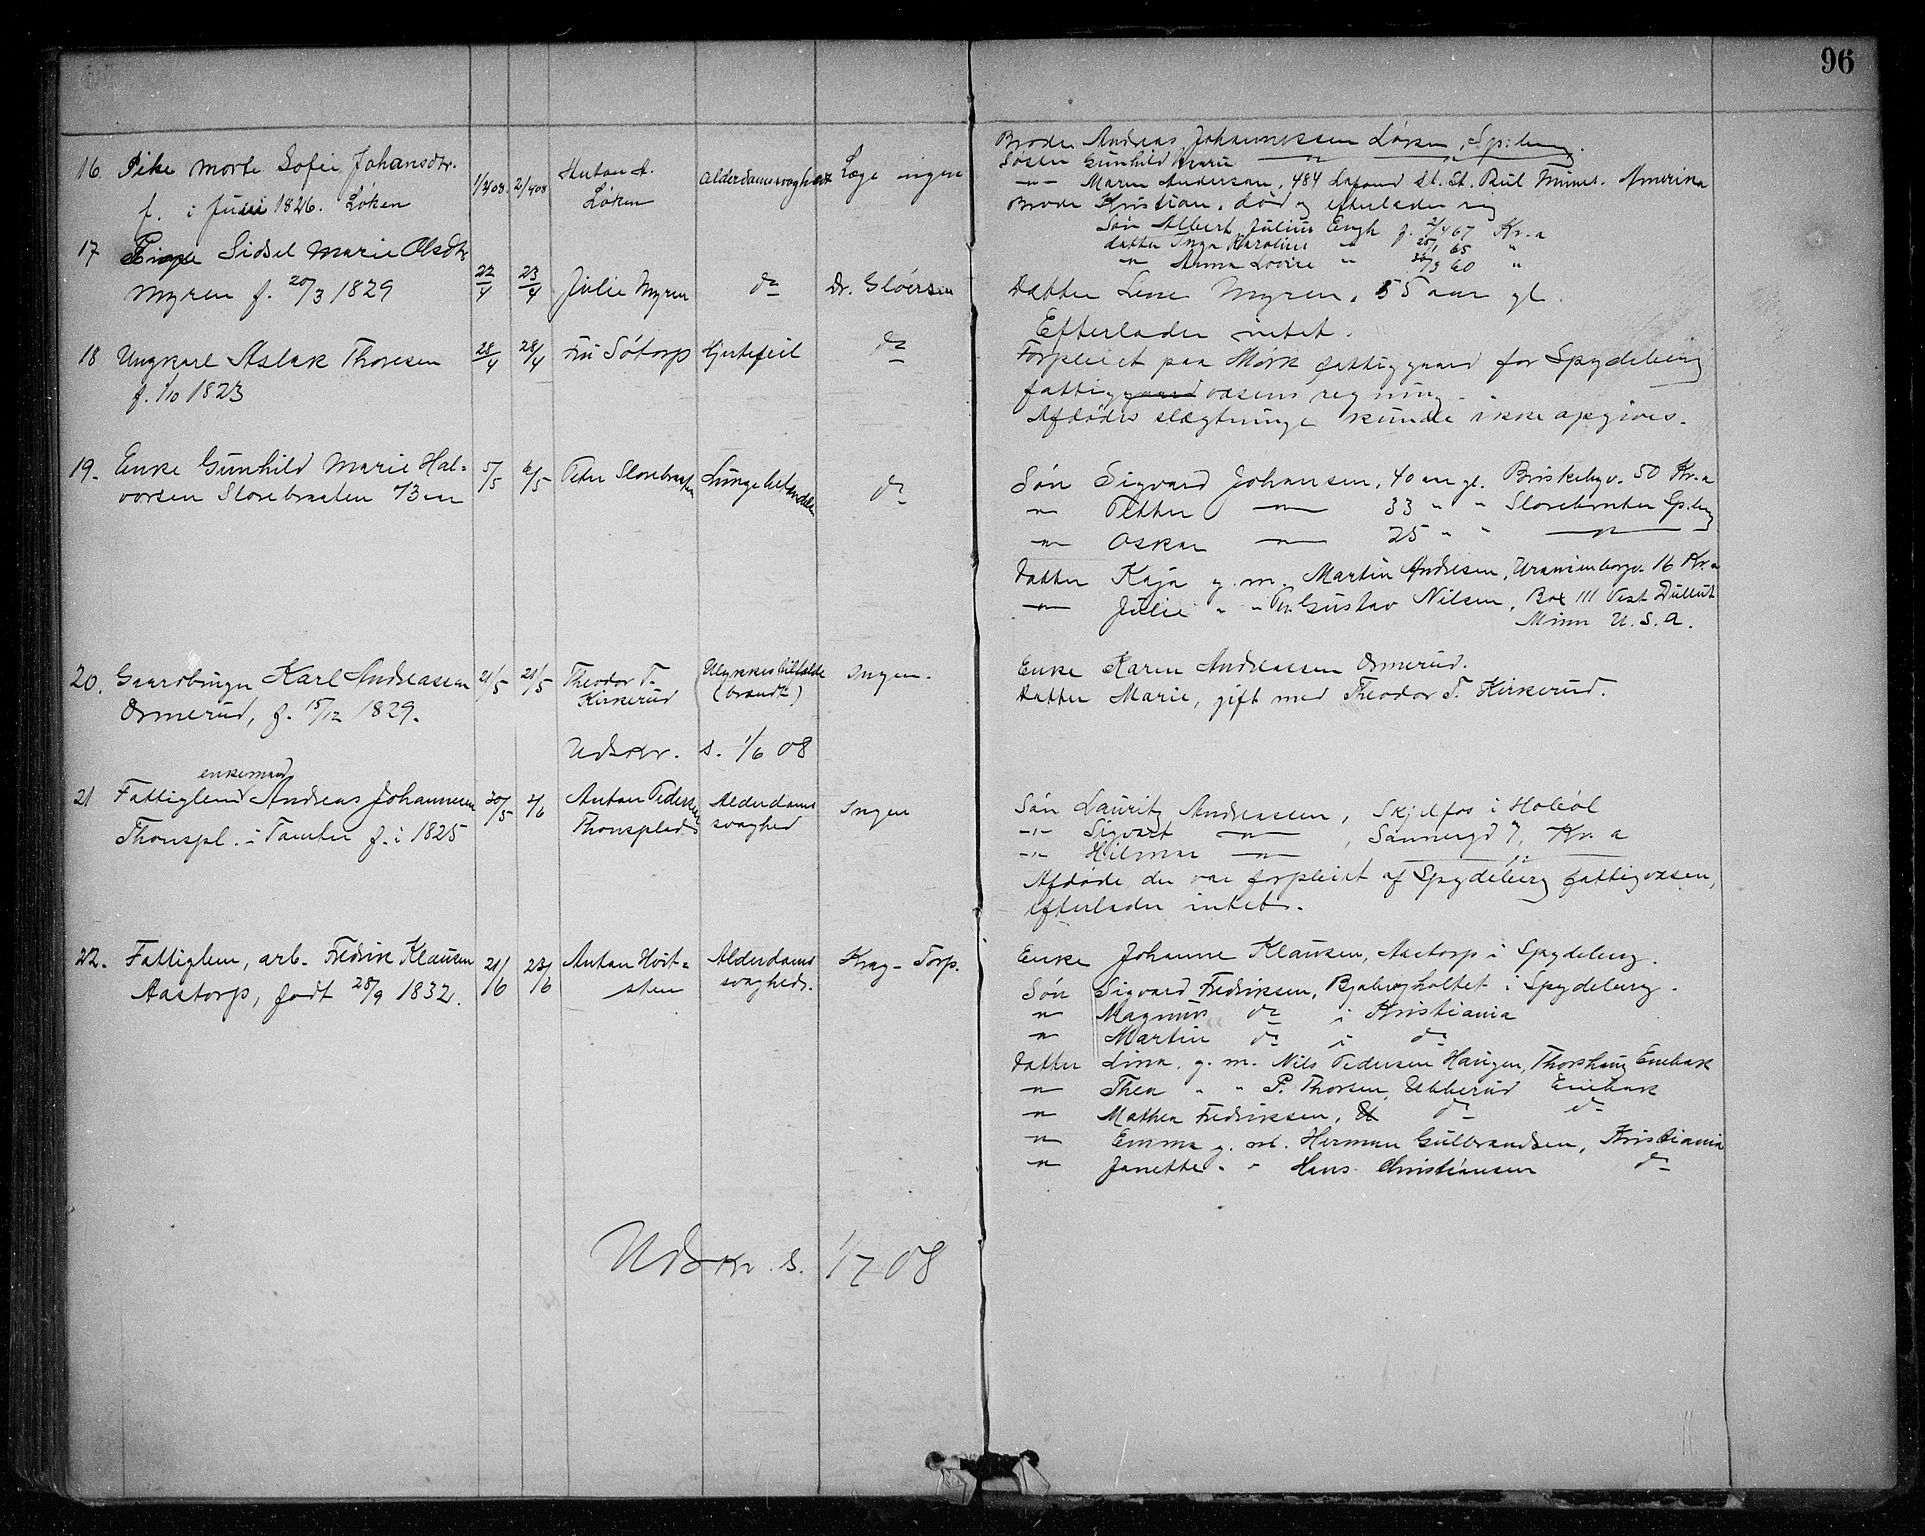 96
16. Pike Marte Sofie Johansdtr. 1/4 08. 2/4 08 Anton A. Alderdomssvaghed Læge ingen
f. i Juni 1826. Løken Løken
Broder Andreas Johannessen Løken, Sp:berg.
Søster Gunhild Marie — " — — " —
— " — Maren Anderson, 484 Lafond St. St. Paul Minnes. Amerika
Broder Kristian, død og efterlader sig
Søn Albert Julius Engh f. 2/4 67 Kr.a
datter Inga Karoline " 25/1 65 "
— " — Anna Lovise " 30/3 60 "
17 Pige Sidsel Marie Olsdtr 22/4 23/4 Julie Myren do Dr. Gløersen
Myren f. 20/3 1829
Datter Lene Myren, 55 aar gl.
Efterlader intet.
18 Ungkarl Aslak Thoresen 28/4 28/4 Fru Søtorp Hjertefeil do
f. 1/10 1823
Forpleiet paa Mork fattiggaard for Spydeberg
fattiggaard væsens regning.
Afdødes slægtninge kunde ikke opgives.
19. Enke Gunhild Marie Hal- 5/5 6/5 Peter Slorebraaten Lungebetændelse do
vorsen Slorebraaten 73 aar
Søn Sigvard Johansen, 40 aar gl. Briskebyv. 50 Kr.a
— " — Petter — " — 33 " " Slorebraaten Sp.berg
— " — Oskar — " — 25 " " — " —
Datter Kaja g. m. Martin Andresen, Uranienborgv. 16 Kr.a
— " — Julie " " Gustav Nilsen, Box 111 Vest Dullut
Minn U. S. A.
20. Gaardbruger Karl Andreassen 21/5 21/5 Theodor T. Ulykkestilfælde Ingen.
Ormerud, f. 15/12 1829. Kirkerud (brandt)
Enke Karen Andreassen Ormerud.
Datter Marie, gift med Theodor T. Kirkerud.
Udskr. s. 1/6 08
enkemand
21 Fattiglem Andreas Johannesen 30/5 2/6 Anton Pedersen Alderdoms Ingen
Thonspl. i Tomter f. i 1825 Thonsplads svaghed
Søn Lauritz Andreassen, Skjelfos i Hobøl
— " — Sigvart — " — , Sannergd 7, Kr. a
— " — Hilmar — " — — " —
Afdøde der var forpleiet af Spydeberg fattigvæsen,
efterlader intet.
22. Fattiglem, arb. Fredrik Klausen 21/6 23/6 Anton Høit- Alderdoms Krag-Torp.
Aastorp, født 28/9 1832. sten svaghed.
Enke Johanne Klausen, Aastorp i Spydeberg.
Søn Sigvard Fredriksen, Bjabergholtet i Spydeberg.
— " — Magnus do i Kristiania
— " — Martin do i do
Datter Lina, g. m. Nils Pedersen Haugen, Thorshaug Enebak
— " — Thea " " P. Thorsen, Ubberud Enebak
— " — Mathea Fredriksen, do do
— " — Emma g. m. Herman Gulbrandsen, Kristiania
— " — Janette " " Hans Christiansen do
Udskr. s. 1/7 08